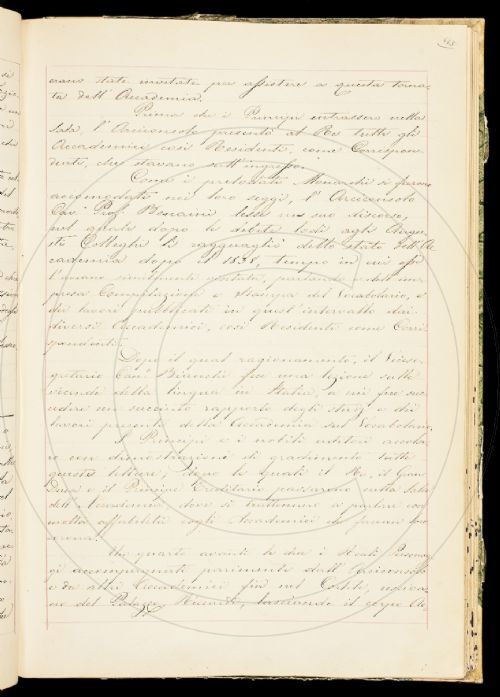 erano state invitate per assistere a questa torna-
ta dell'Accademia.
Prima che i Principi entrassero nella
Sala, l'Arciconsolo presentò al Re tutti gli
Accademici così Residenti, come Corrispon-
denti, che stavano sull'ingresso.
Come i prelodati Monarchi si furono
accomodati nei loro seggi, l'Arciconsolo
Cav. Prof. Bonaini lesse un suo discorso,
nel quale dopo le debite lodi agli Augu-
sti Colleghi li ragguagliò dello stato dell'Ac
cademia dopo il 1838, tempo in cui essi
l'avano
presa Compilazione e Stampa del Vocabolario, e
dei lavori pubblicati in quest'intervallo dai
diversi Accademici, così Residenti come Corri
spondenti.
Dopo il qual ragionamento, il Vicese-
gretario Can.co Bianchi fece una lezione sulle
vicende della lingua in Italia, a cui fece suc-
cedere un succinto rapporto degli studj e dei
lavori presenti della Accademia sul Vocabolario.
I Principi e i nobili uditori accolse-
ro con dimostrazione di gradimento tutte
queste letture, dopo le quali il Re, il Gran
Duca e il Principe Ereditario passarono nella Sala
dell'Accademia, dove si trattennero a parlare con
molta affabilità cogli Accademici che facevan loro
corona.
Un quarto avanti le due i Reali Personag-
gi accompagnati parimente dall'Arciconsolo
e da altri Accademici fin nel Cortile,
no del Palazzo Riccardi, lasciando il corpo Ac